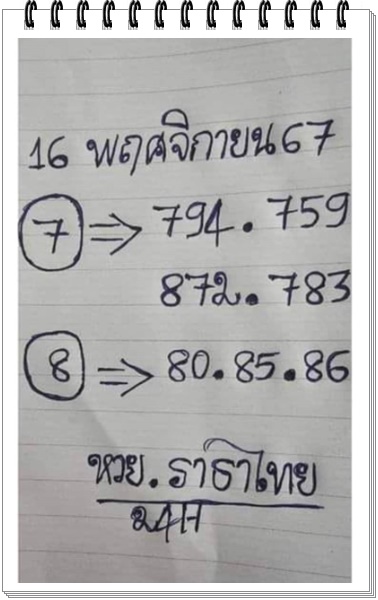 16 พฤศจิกายน 67
7 ⇒ 794.759
872.783
8 ⇒ 80.85.86
หวย.ราธาไทย
24H